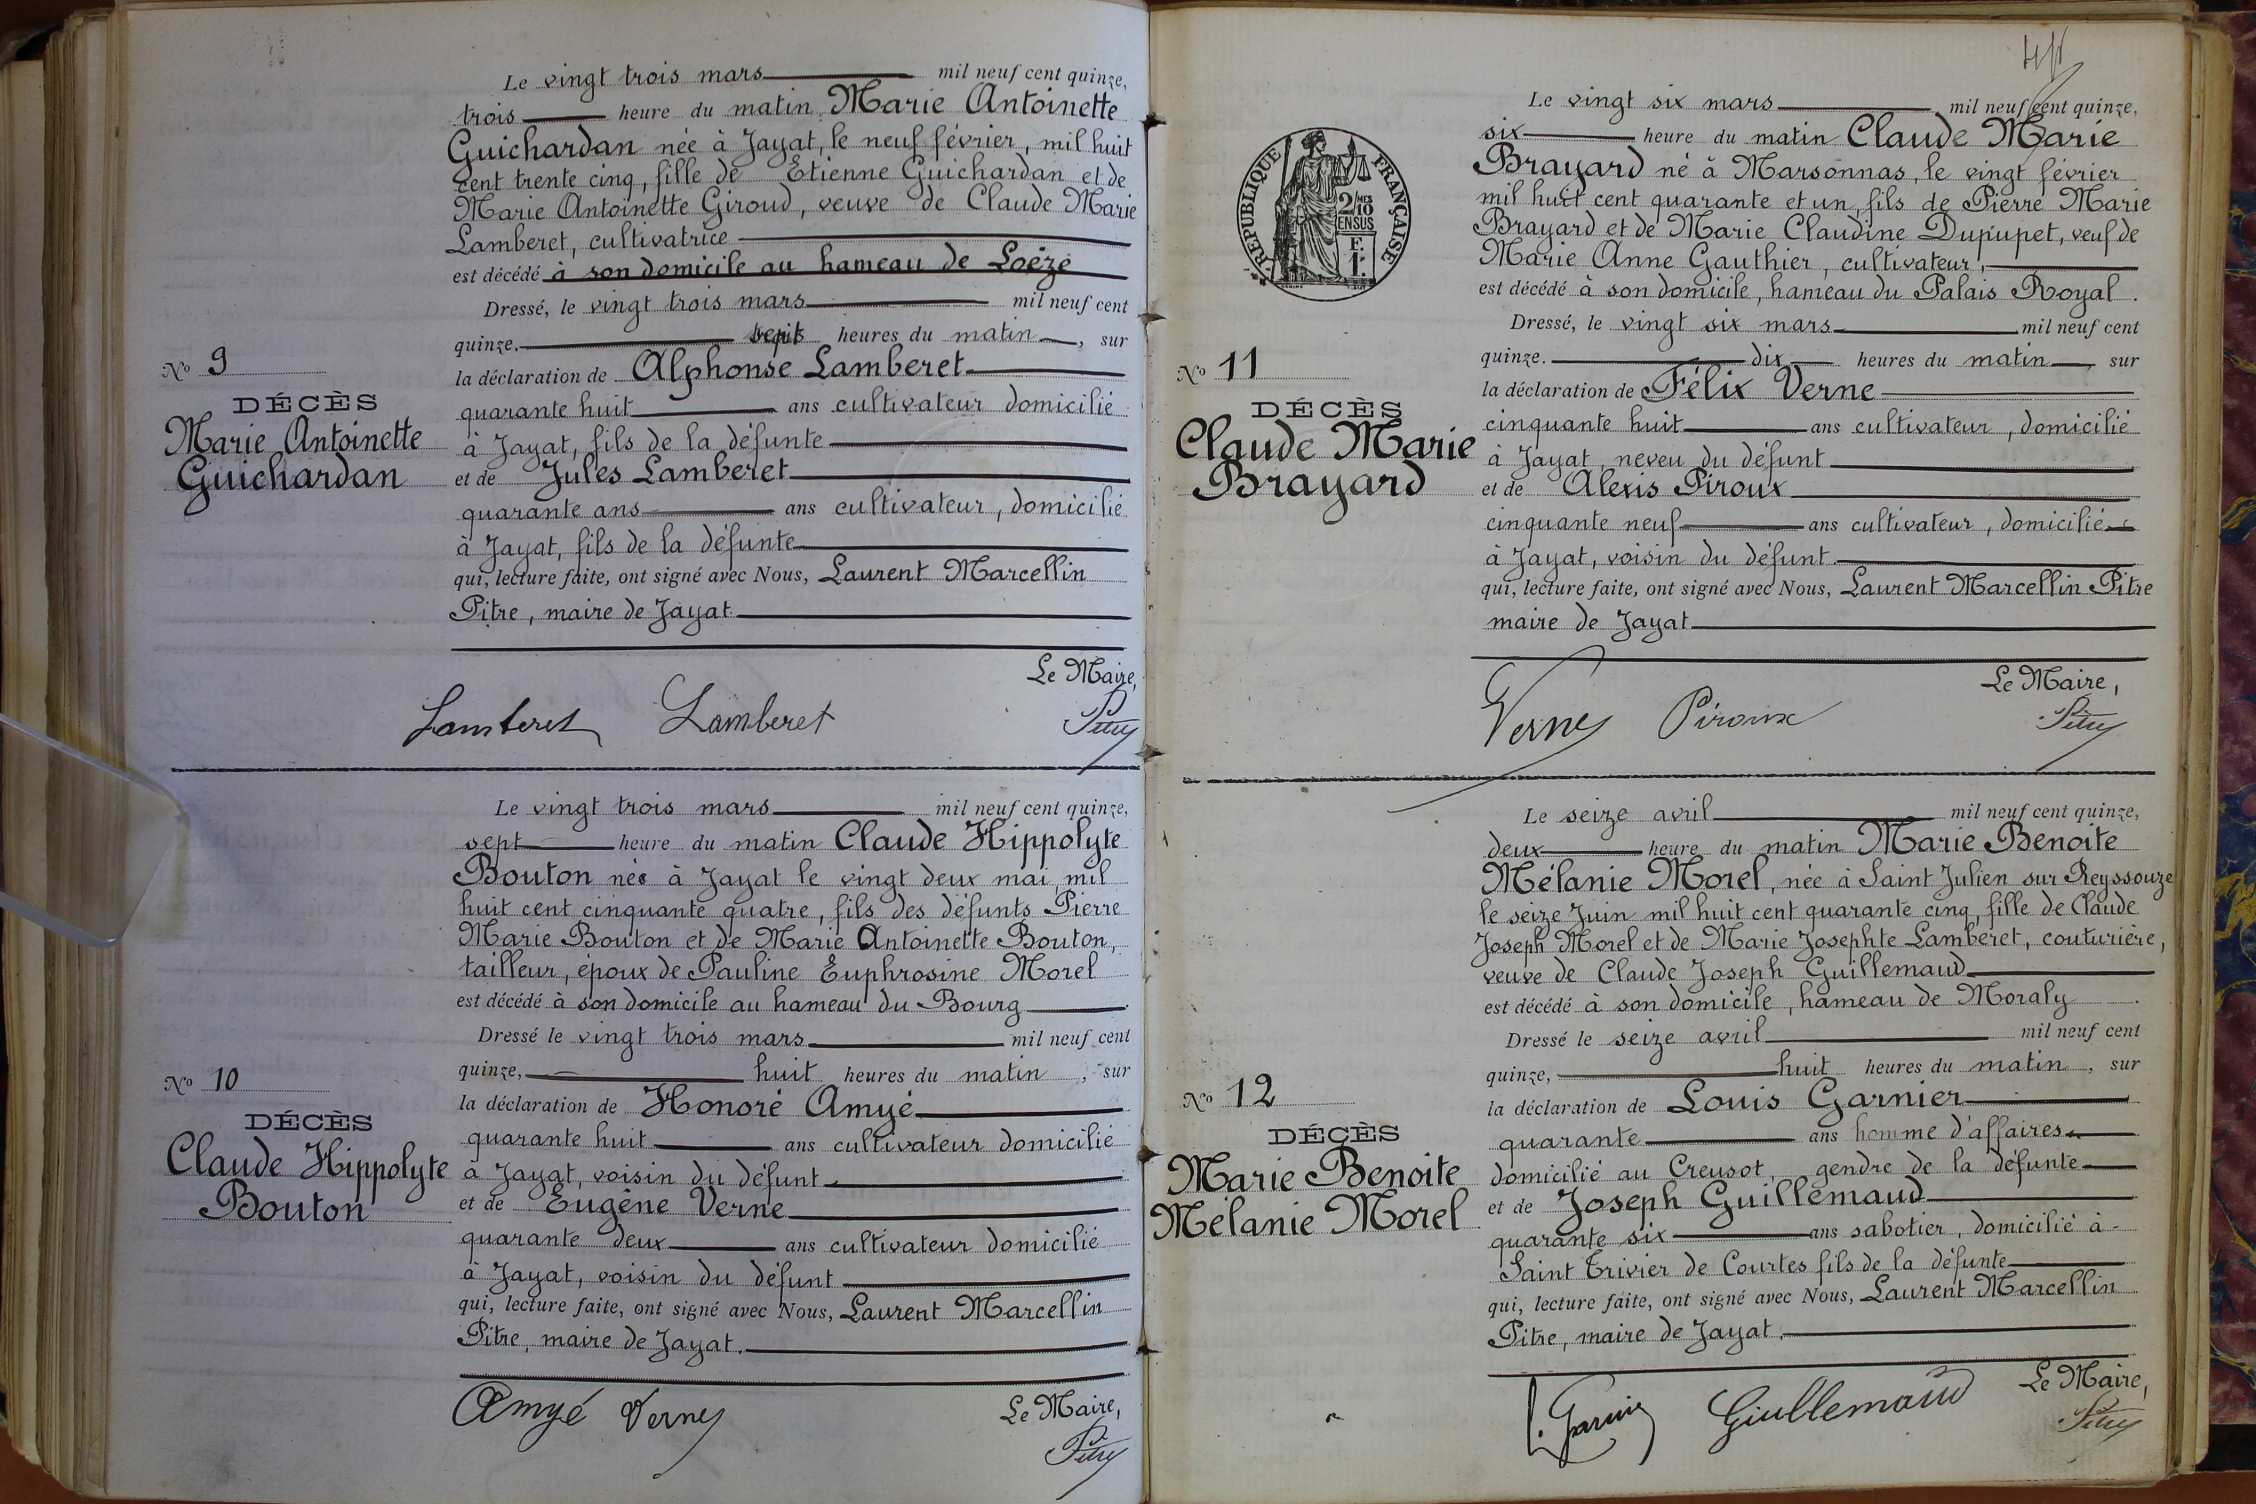 Le vingt trois mars mil neuf cent quinze,
trois heure du matin Marie Antoinette
Guichardan née à Jayat, le neuf février, mil huit
cent trente cinq, fille de Etienne Guichardan et de
Marie Antoinette Giroud, veuve de Claude Marie
Lamberet, cultivatrice
est décédé à son domicile au hameau de Loëze
Dressé, le vingt trois mars mil neuf cent
quinze. sept heures du matin, sur
No 9
la déclaration de Alphonse Lamberet
DÉCÈS
quarante huit ans cultivateur domicilié
Marie Antoinette
à Jayat, fils de la défunte
Guichardan
et de Jules Lamberet
quarante ans ans cultivateur, domicilié
à Jayat, fils de la défunte
qui, lecture faite, ont signé avec Nous, Laurent Marcellin
Pitre, maire de Jayat
Le Maire,
Lamberet Lamberet Pitre
Le vingt trois mars mil neuf cent quinze,
sept heure du matin Claude Hippolyte
Bouton né à Jayat le vingt deux mai mil
huit cent cinquante quatre, fils des défunts Pierre
Marie Bouton et de Marie Antoinette Bouton,
tailleur, époux de Pauline Euphrosine Morel
est décédé à son domicile au hameau du Bourg
Dressé le vingt trois mars mil neuf cent
quinze, huit heures du matin, sur
No 10
la déclaration de Honoré Amyé
DÉCÈS
quarante huit ans cultivateur domicilié
Claude Hippolyte
à Jayat, voisin du défunt
Bouton
et de Eugène Verne
quarante deux ans cultivateur domicilié
à Jayat, voisin du défunt
qui, lecture faite, ont signé avec Nous, Laurent Marcellin
Pitre, maire de Jayat.
Amyé Verne Le Maire,
Pitre
RÉPUBLIQUE FRANÇAISE
2/10
EN SUS
F.
1.
Le vingt six mars mil neuf cent quinze,
six heure du matin Claude Marie
Brayard né à Marsonnas, le vingt février
mil huit cent quarante et un, fils de Pierre Marie
Brayard et de Marie Claudine Dupupet, veuf de
Marie Anne Gauthier, cultivateur,
est décédé à son domicile, hameau du Palais Royal.
Dressé, le vingt six mars mil neuf cent
quinze. dix heures du matin, sur
No 11
la déclaration de Félix Verne
DÉCÈS
cinquante huit ans cultivateur, domicilié
Claude Marie
à Jayat, neveu du défunt
Brayard
et de Alexis Piroux
cinquante neuf ans cultivateur, domicilié
à Jayat, voisin du défunt
qui, lecture faite, ont signé avec Nous, Laurent Marcellin Pitre
maire de Jayat
Le Maire,
Verne Piroux Pitre
Le seize avril mil neuf cent quinze,
deux heure du matin Marie Benoite
Mélanie Morel, née à Saint Julien sur Reyssouze
le seize Juin mil huit cent quarante cinq, fille de Claude
Joseph Morel et de Marie Josephte Lamberet, couturière,
veuve de Claude Joseph Guillemaud
est décédé à son domicile, hameau de Moraly
Dressé le seize avril mil neuf cent
quinze, huit heures du matin, sur
No 12
la déclaration de Louis Garnier
DÉCÈS
quarante ans homme d'affaires
Marie Benoite
domicilié au Creusot, gendre de la défunte
Mélanie Morel
et de Joseph Guillemaud
quarante six ans sabotier, domicilié à
Saint Trivier de Courtes fils de la défunte
qui, lecture faite, ont signé avec Nous, Laurent Marcellin
Pitre, maire de Jayat.
Le Maire,
L. Garnier Guillemaud Pitre